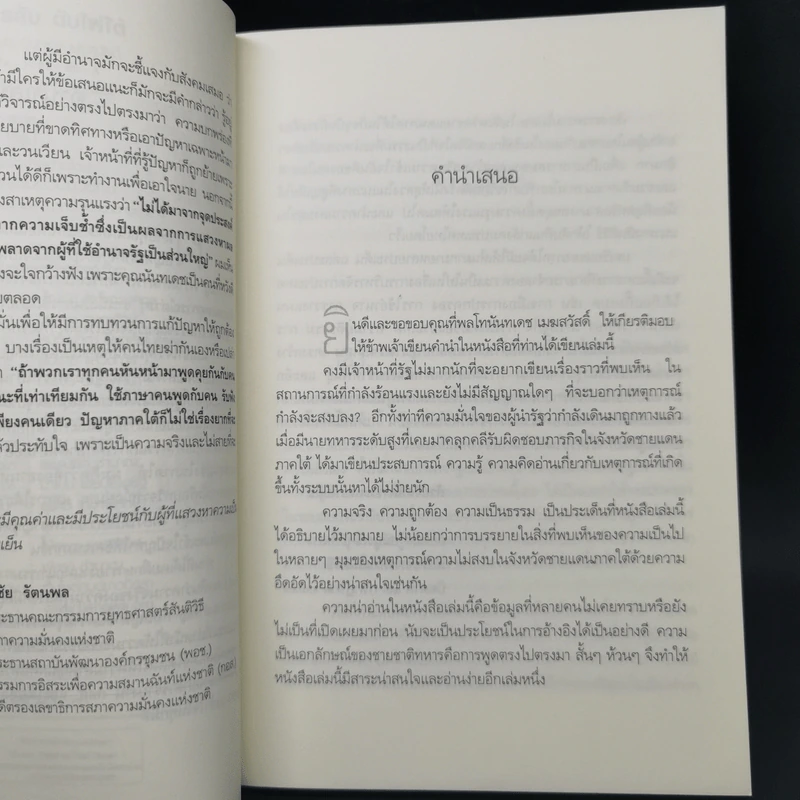 แต่ผู้มีอำนาจมักจะชี้แจงกับสังคมเสมอ ว่า
มีใครให้ข้อเสนอแนะก็มักจะมีคำกล่าวว่า
วิจารณ์อย่างตรงไปตรงมาว่า ความบกพร่อง
ยบายที่ขาดทิศทางหรือเอาปัญหาเฉพาะหน้า
และวนเวียน เจ้าหน้าที่ที่รู้ปัญหาก็ถูกย้ายเพราะ
วนได้ดีก็เพราะทำงานเพื่อเอาใจนาย นอกจากนี้
งสาเหตุความรุนแรงว่า "ไม่ได้มาจากจุดประสงค์
ากความเจ็บช้ำซึ่งเป็นผลจากการแสวงหา
พลาดจากผู้ที่ใช้อำนาจรัฐเป็นส่วนใหญ่" ผมเห็น
งจะใจกว้างฟัง เพราะคุณนันทเดชเป็นคนที่หวังดี
ยตลอด
มั่นเพื่อให้มีการทบทวนการแก้ปัญหาให้ถูกต้อง
บางเรื่องเป็นเหตุให้คนไทยฆ่ากันเองหรือ
"ถ้าพวกเราทุกคนหันหน้ามาพูดคุยกันกับคน
ณะที่เท่าเทียมกัน ใช้ภาษาคนพูดกับคน รับฟัง
พียงคนเดียว ปัญหาภาคใต้ก็ไม่ใช่เรื่องยากที่จะ
ล้วประทับใจ เพราะเป็นความจริงและไม่สายที่จะ
ะมีคุณค่าและมีประโยชน์กับผู้ที่แสวงหาความ
เย็น
ชัย รัตนพล
ระธานคณะกรรมการยุทธศาสตร์สันติวิธี
ภาความมั่นคงแห่งชาติ
ระธานสถาบันพัฒนาองค์กรชุมชน (พอช.)
รรมการอิสระเพื่อความสมานฉันท์แห่งชาติ (กอส.)
ดีตรองเลขาธิการสภาความมั่นคงแห่งชาติ
คำนำเสนอ
ยินดีและขอขอบคุณที่พลโทนันทเดช เมฆสวัสดิ์ ให้เกียรติมอบ
ให้ข้าพเจ้าเขียนคำนำในหนังสือที่ท่านได้เขียนเล่มนี้
คงมีเจ้าหน้าที่รัฐไม่มากนักที่จะอยากเขียนเรื่องราวที่พบเห็น ใน
สถานการณ์ที่กำลังร้อนแรงและยังไม่มีสัญญาณใดๆ ที่จะบอกว่าเหตุการณ์
กำลังจะสงบลง? อีกทั้งท่าทีความมั่นใจของผู้นำรัฐว่ากำลังเดินมาถูกทางแล้ว
เมื่อมีนายทหารระดับสูงที่เคยมาคลุกคลีรับผิดชอบภารกิจในจังหวัดชายแดน
ภาคใต้ ได้มาเขียนประสบการณ์ ความรู้ ความคิดอ่านเกี่ยวกับเหตุการณ์ที่เกิด
ขึ้นทั้งระบบนั้นหาได้ไม่ง่ายนัก
ความจริง ความถูกต้อง ความเป็นธรรม เป็นประเด็นที่หนังสือเล่มนี้
ได้อธิบายไว้มากมาย ไม่น้อยกว่าการบรรยายในสิ่งที่พบเห็นของความเป็นไป
ในหลายๆ มุมของเหตุการณ์ความไม่สงบในจังหวัดชายแดนภาคใต้ด้วยความ
อึดอัดไว้อย่างน่าสนใจเช่นกัน
ความน่าอ่านในหนังสือเล่มนี้คือข้อมูลที่หลายคนไม่เคยทราบหรือยัง
ไม่เป็นที่เปิดเผยมาก่อน นับจะเป็นประโยชน์ในการอ้างอิงได้เป็นอย่างดี ความ
เป็นเอกลักษณ์ของชายชาติทหารคือการพูดตรงไปตรงมา สั้นๆ ห้วนๆ จึงทำให้
หนังสือเล่มนี้มีสาระน่าสนใจและอ่านง่ายอีกเล่มหนึ่ง